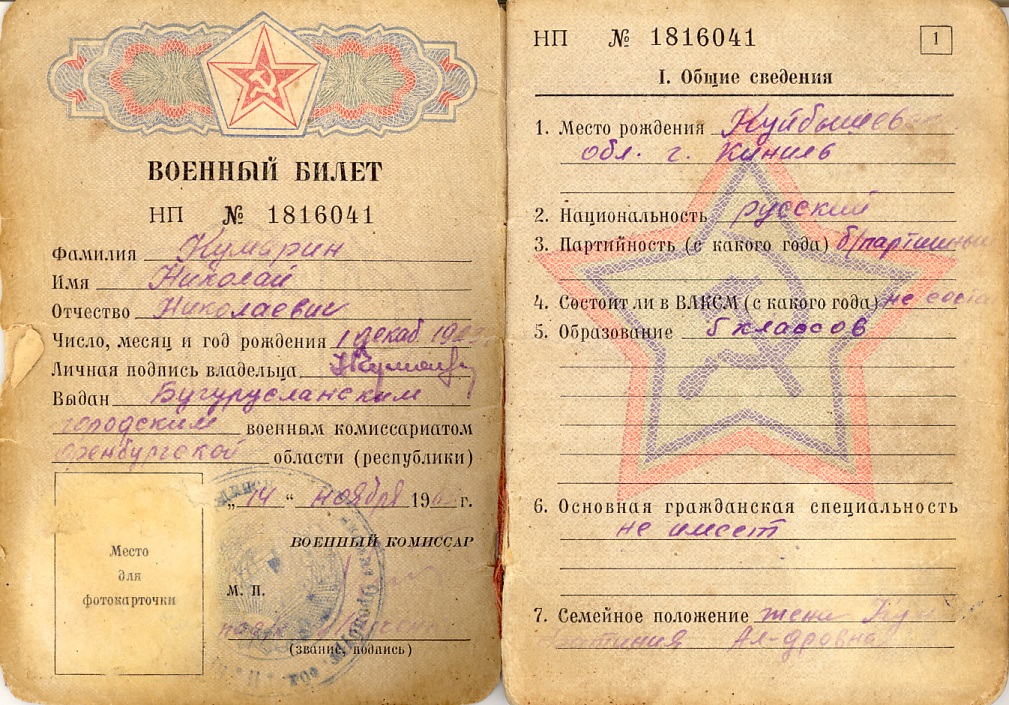 ВОЕННЫЙ БИЛЕТ
НП № 1816041
Фамилия Кумарин
Имя Николай
Отчество Николаевич
Число, месяц и год рождения 1 декаб.
Личная подпись владельца
Выдан Бугурусланским
городским военным комиссариатом
Оренбургской области (республики)
„14“ ноября 196 г.
ВОЕННЫЙ КОМИССАР
М. П.
(звание, подпись)
Место
для
фотокарточки
НП № 1816041
1
I. Общие сведения
1. Место рождения Куйбышев
обл. г. Кинель
2. Национальность русский
3. Партийность (с какого года) б/партийный
4. Состоит ли в ВЛКСМ (с какого года) не
5. Образование 5 классов
6. Основная гражданская специальность
не имеет
7. Семейное положение жена